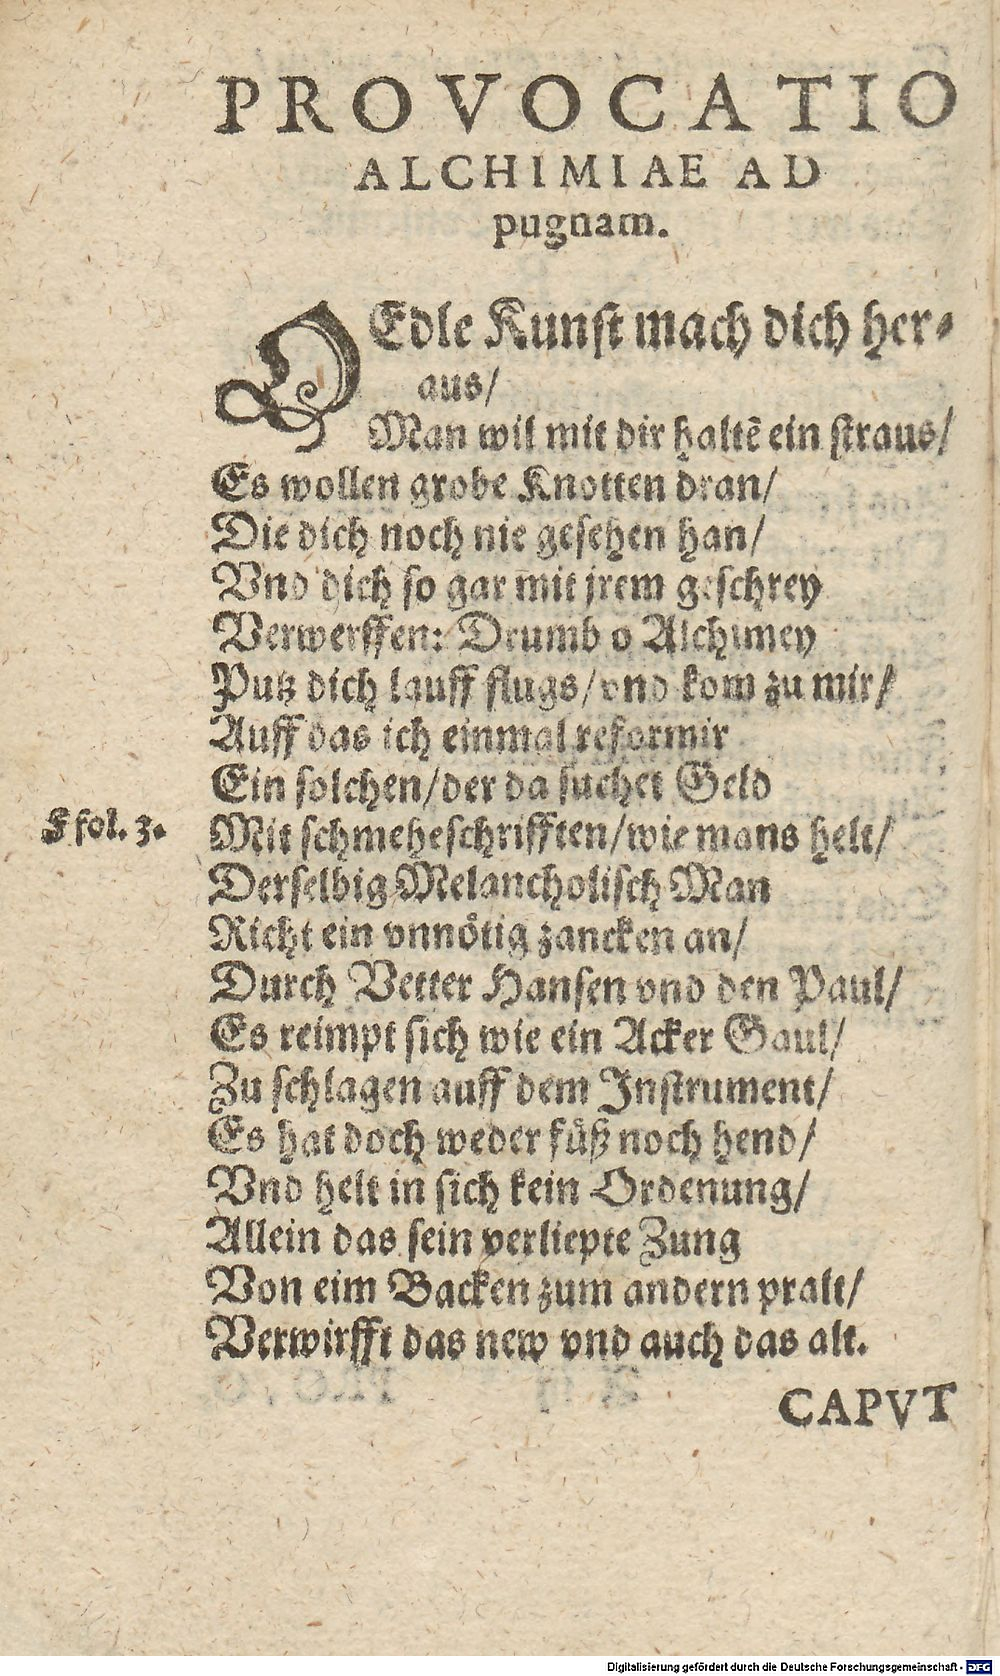 PROVOCATIO
ALCHIMIAE AD
pugnam.
O Edle Kunſt mach dich her⸗
aus/
Man wil mit dir haltẽ ein ſtraus/
Es wollen grobe Knotten dran/
Die dich noch nie geſehen han/
Vnd dich ſo gar mit jrem geſchrey
Verwerffen: Drumb o Alchimey
Putz dich lauff flugs/vnd kom zu mir/
Auff das ich einmal reformir
Ein ſolchen/der da ſuchet Geld
F fol. 3.
Mit ſchmeheſchrifften/wie mans helt/
Derſelbig Melancholiſch Man
Richt ein vnnötig zancken an/
Durch Vetter Hanſen vnd den Paul/
Es reimpt ſich wie ein Acker Gaul/
Zu ſchlagen auff dem Inſtrument/
Es hat doch weder füß noch hend/
Vnd helt in ſich kein Ordenung/
Allein das ſein verliepte Zung
Von eim Backen zum andern pralt/
Verwirfft das new vnd auch das alt.
CAPVT
Digitalisierung gefördert durch die Deutsche Forschungsgemeinschaft - DFG